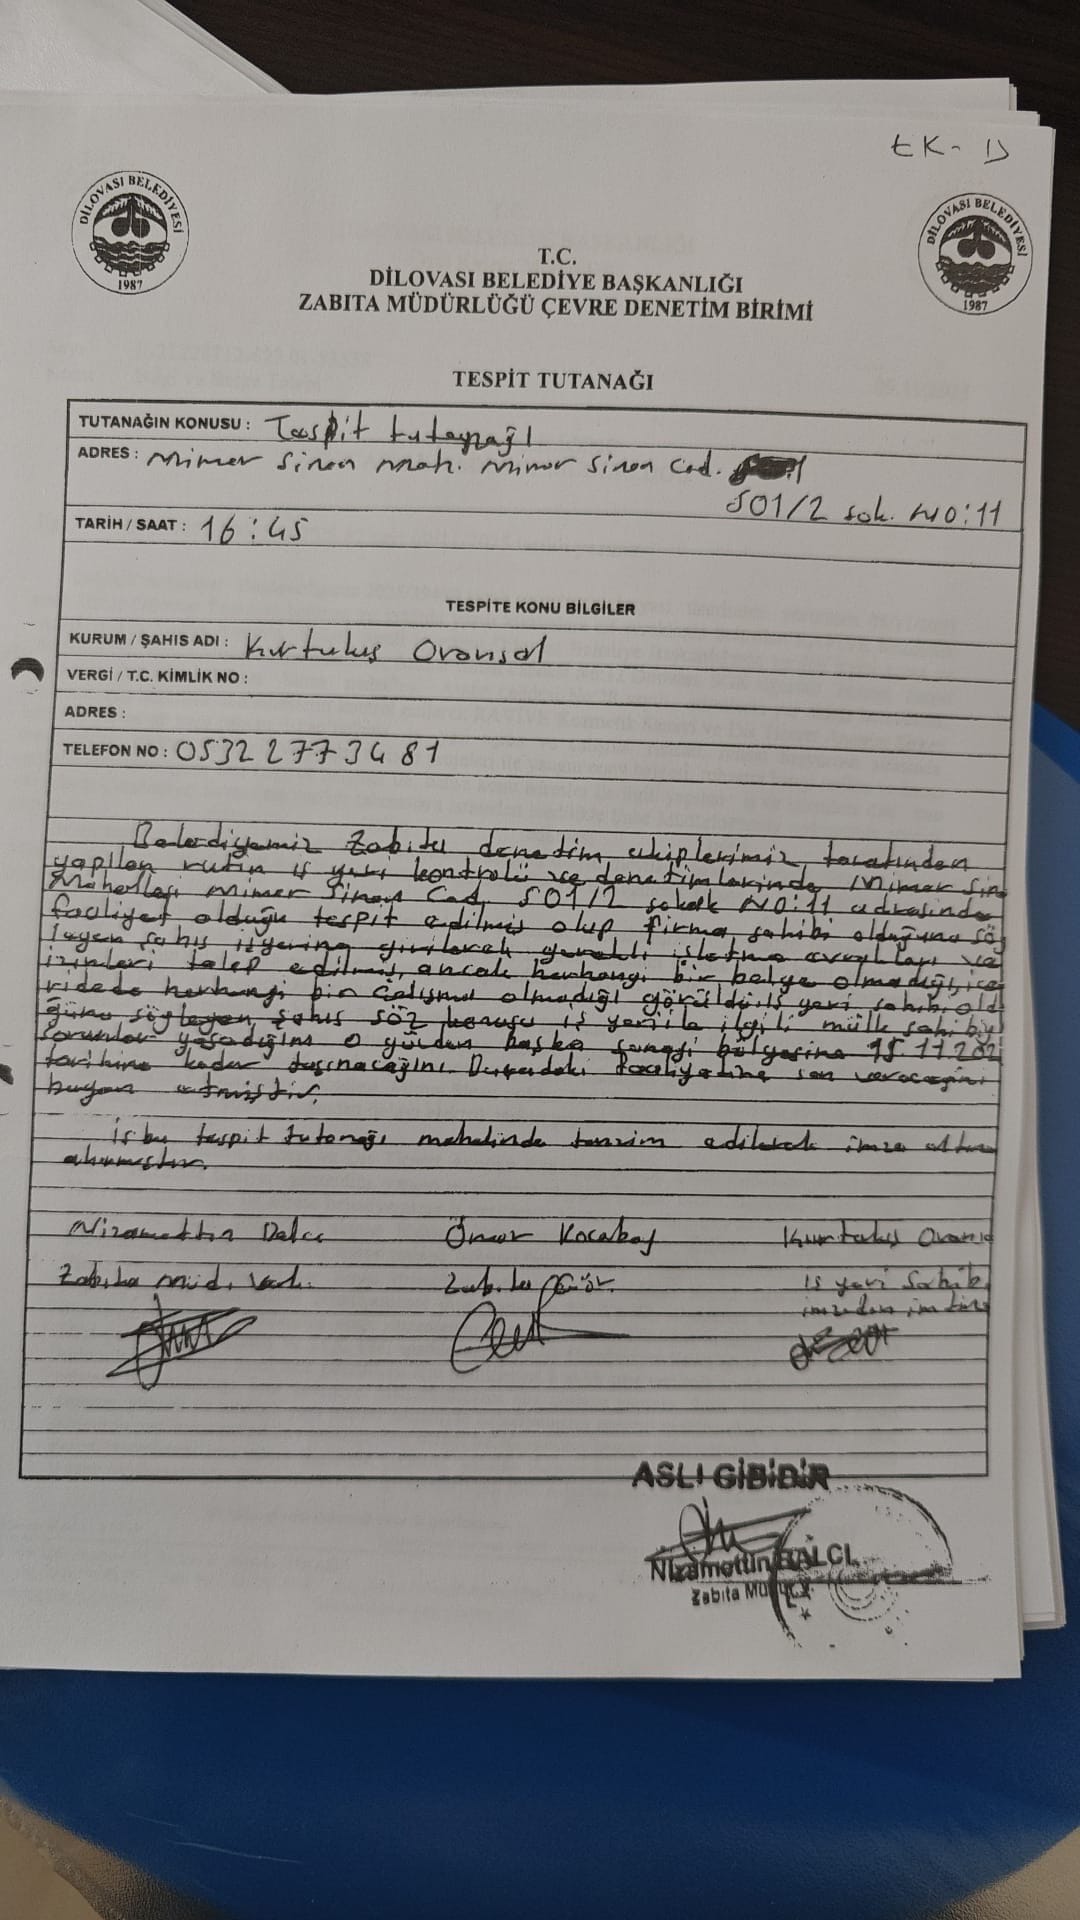 EK-D
DİLOVASI BELEDİYESİ
1987
DİLOVASI BELEDİYESİ
1987
T.C.
DİLOVASI BELEDİYE BAŞKANLIĞI
ZABITA MÜDÜRLÜĞÜ ÇEVRE DENETİM BİRİMİ
TESPİT TUTANAĞI
TUTANAĞIN KONUSU : Tespit tutanağı
ADRES : Mimar Sinan Mah. Mimar Sinan Cad.
501/2 sok. NO:11
TARİH / SAAT : 16:45
TESPİTE KONU BİLGİLER
KURUM / ŞAHIS ADI : Kurtuluş Oransal
VERGİ / T.C. KİMLİK NO :
ADRES :
TELEFON NO : 0532 277 34 81
Belediyemiz Zabıta denetim ekiplerimiz tarafından
yapılan rutin iş yeri kontrolü ve denetimlerinde Mimar Sin
Mahallesi Mimar Sinan Cad. 501/2 sokak NO:11 adresinde
faaliyet olduğu tespit edilmiş olup firma sahibi olduğunu söy
leyen şahıs işyerine girilerek gerekli işletme evrakları ve
izinleri talep edilmiş, ancak herhangi bir belge olmadığı, içe
ride de herhangi bir çalışma olmadığı görüldü. iş yeri sahibi old
ğunu söyleyen şahıs söz konusu iş yeri ile ilgili mülk sahibiyl
sorunlar yaşadığını o yüzden başka sanayi bölgesine 15.11.202
tarihine kadar taşınacağını. Buradaki faaliyetine son vereceğini
beyan etmiştir.
iş bu tespit tutanağı mahalinde tanzim edilerek imza altına
alınmıştır.
Nizamettin Balcı
Ömür Kocabaş
Kurtuluş Oransa
Zabıta Müd. Vek.
Zabıta Gör.
iş yeri Sahibi
imzadan imtina
ASLI GİBİDİR
Nizamettin BALCI
Zabıta Müdür V.